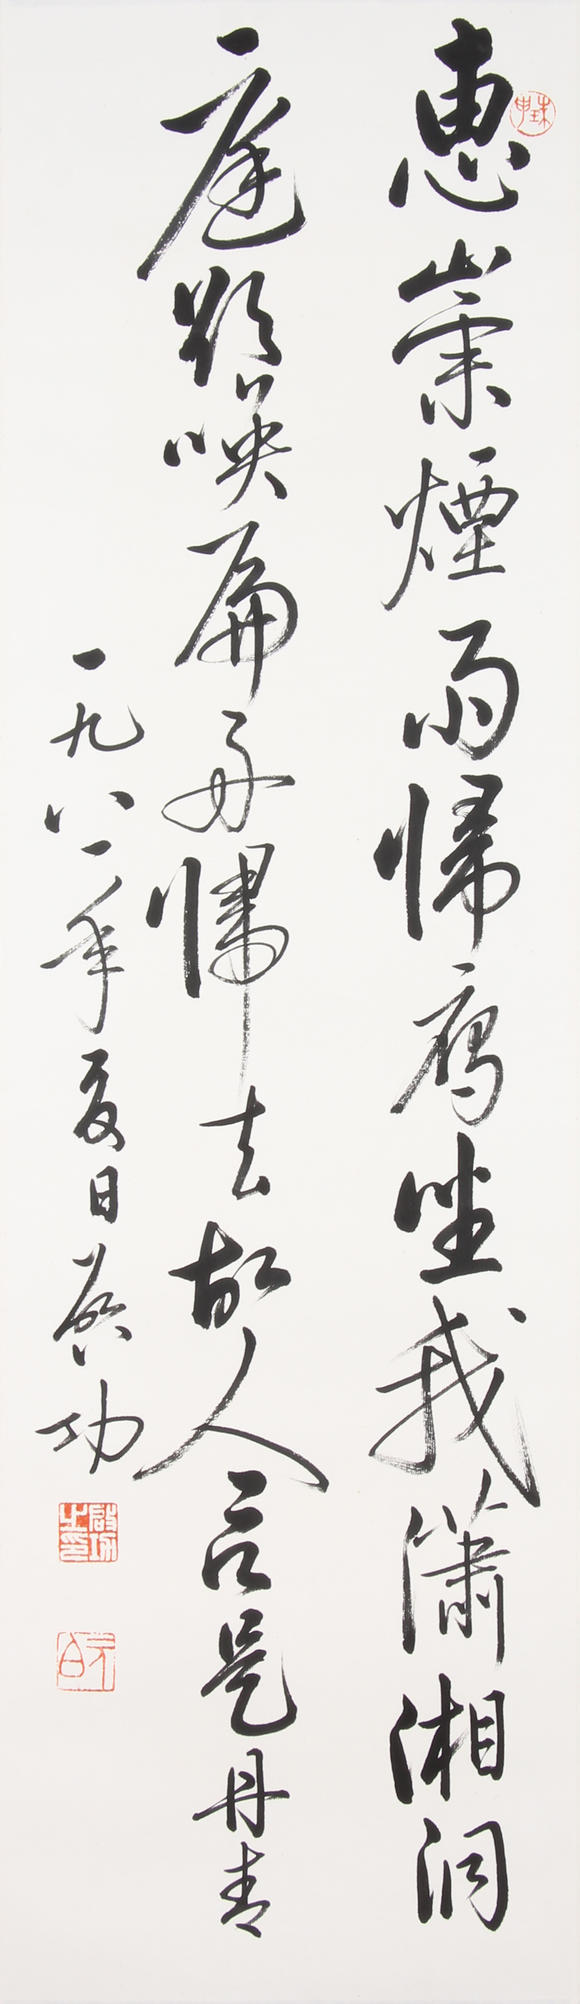 惠崇煙雨歸鴈坐我瀟湘洞
珠申
庭欲喚扁舟歸去故人言是丹青
一九八一年夏日啓功
啟功之印
元白